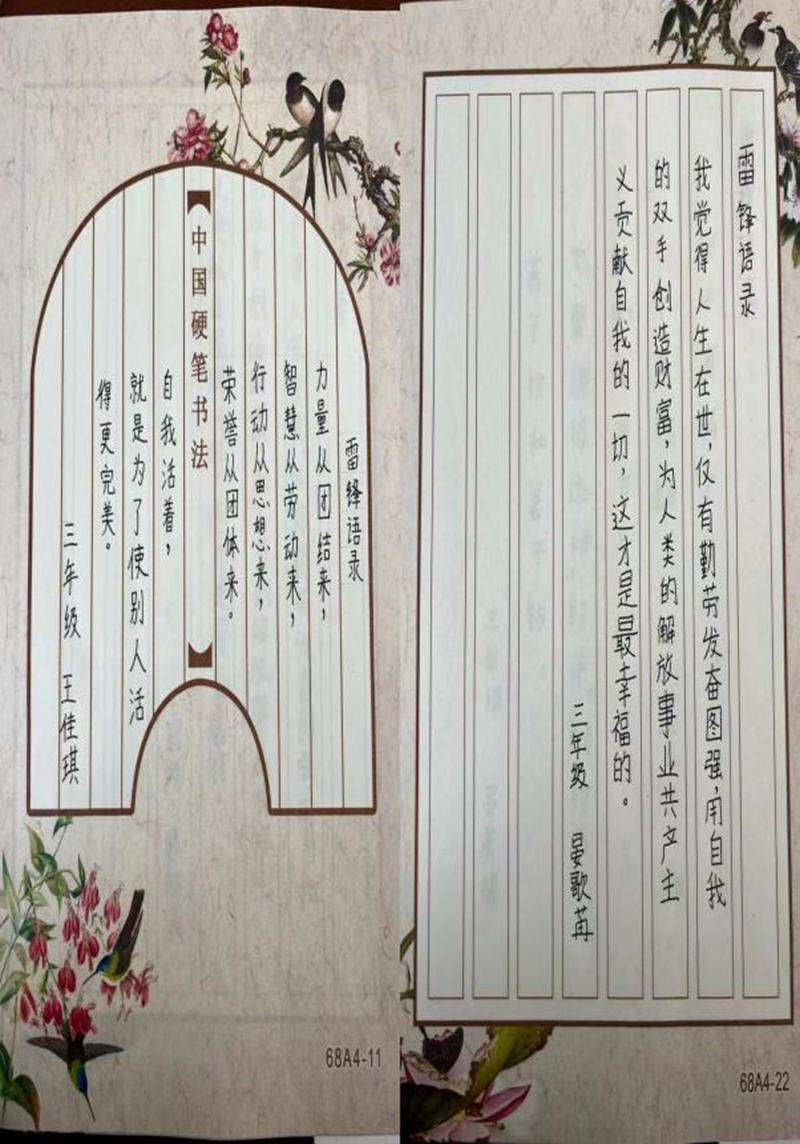 雷锋语录
力量从团结来，
智慧从劳动来，
行动从思想来，
荣誉从团体来。
中国硬笔书法
自我活着，
就是为了使别人活
得更完美。
三年级 王佳琪
68A4-11
雷锋语录
我觉得人生在世，仅有勤劳发奋图强，用自我
的双手创造财富，为人类的解放事业共产主
义贡献自我的一切，这才是最幸福的。
三年级 晏歌苒
68A4-22